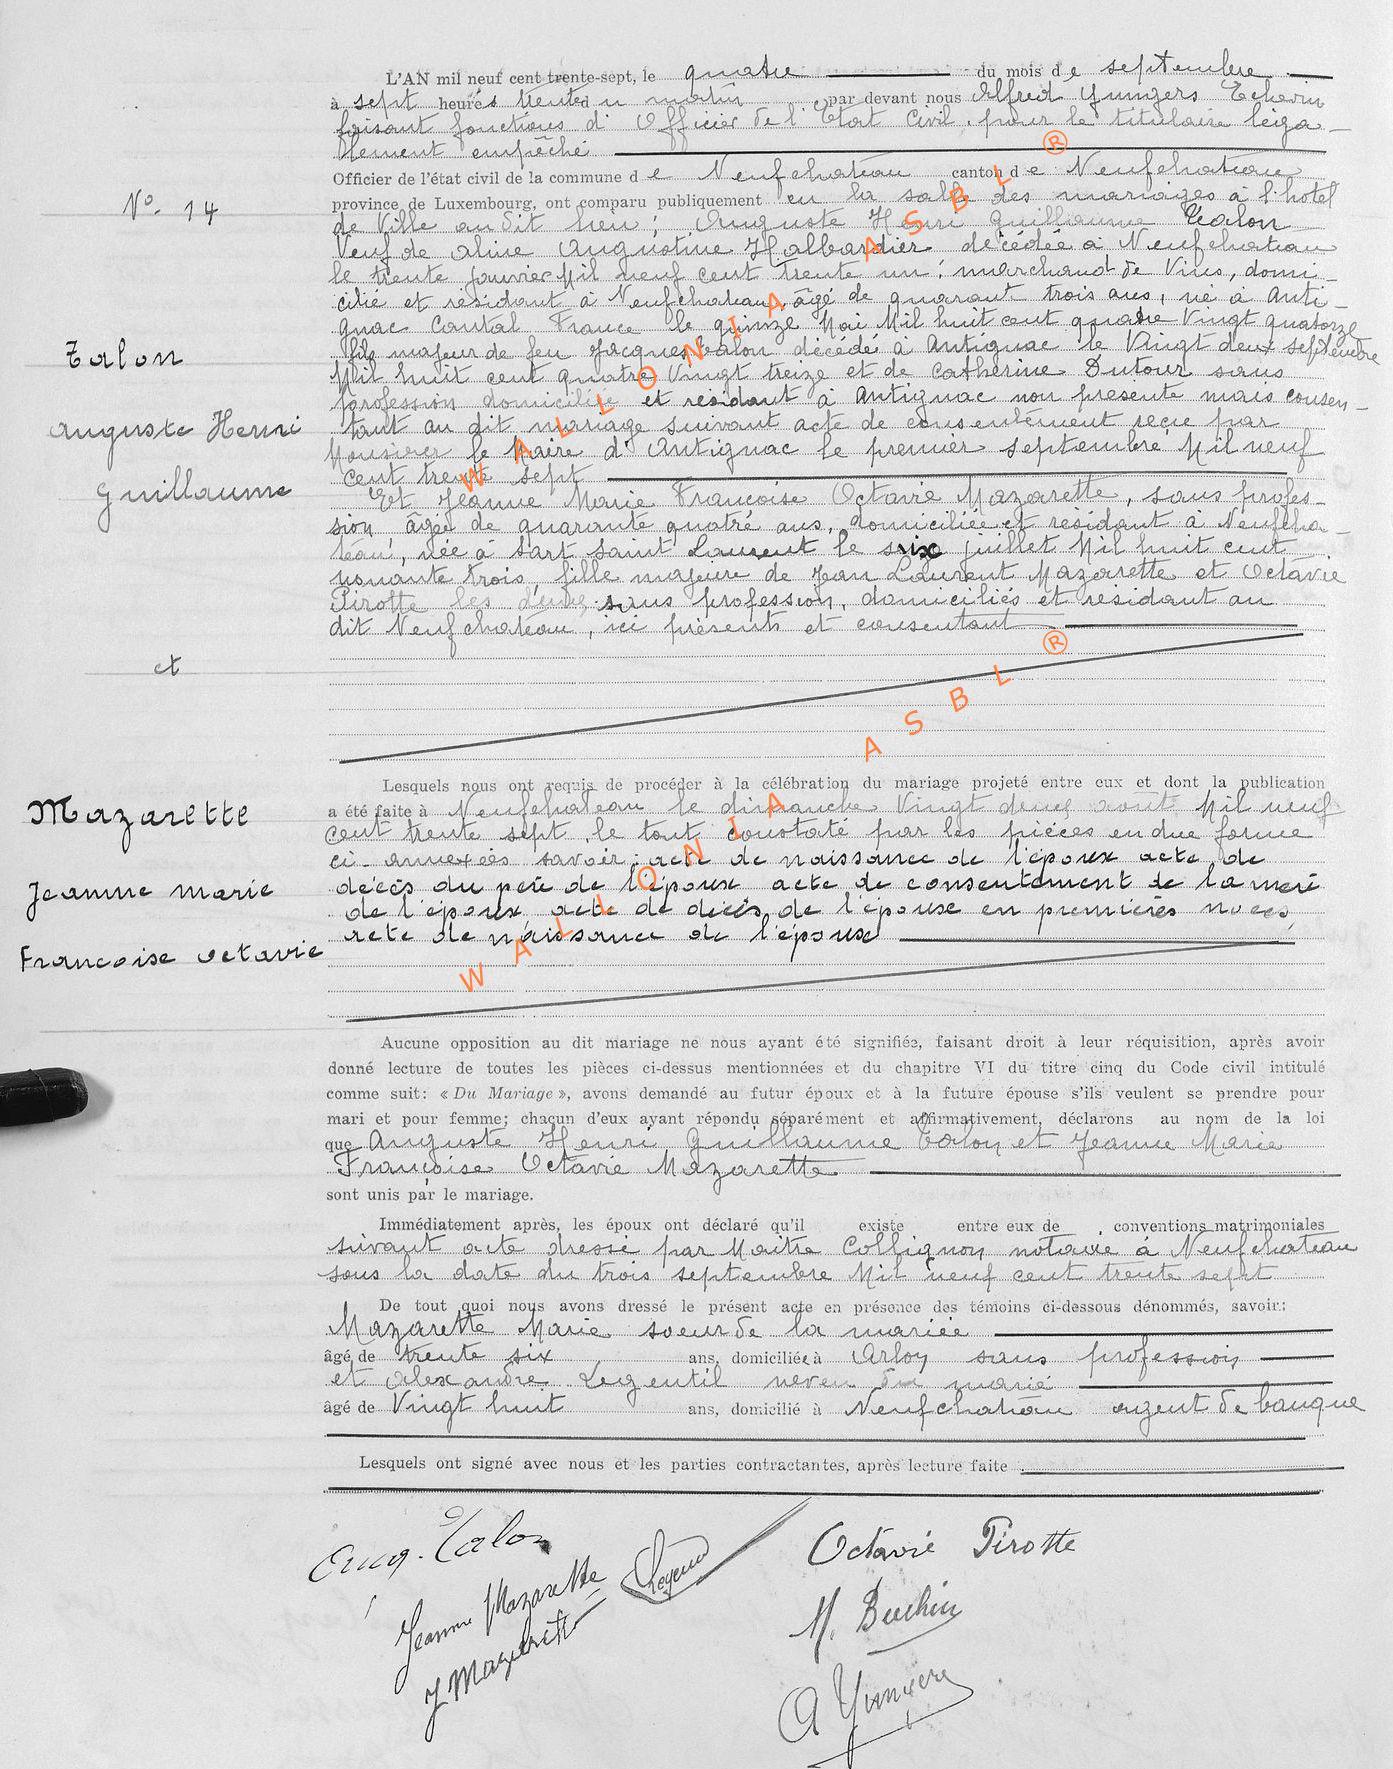 L'AN mil neuf cent trente-sept, le quatre du mois de septembre
à sept heures trente du matin par devant nous Alfred Yungers Echevin
faisant fonctions d'Officier de l'Etat Civil, pour le titulaire léga-
lement empêché
Officier de l'état civil de la commune de Neufchateau canton de Neufchateau
province de Luxembourg, ont comparu publiquement en la salle des mariages à l'hotel
de Ville au dit lieu; Auguste Henri Guillaume Talon
Veuf de Aline Augustine Halbardier décédée à Neufchateau
le trente Janvier Mil neuf cent trente un; marchand de Vins, domi-
cilié et résidant à Neufchateau, âgé de quarant trois ans, né à Anti-
gnac Cantal France le quinze Mai Mil huit cent quatre Vingt quatorze
fils majeur de feu Jacques Talon décédé à Antignac le Vingt deux septembre
Mil huit cent quatre Vingt treize et de Catherine Dutour sans
profession domiciliée et résidant à Antignac non présente mais consen-
tant au dit mariage suivant acte de consentement reçu par
Monsieur le Maire d'Antignac le premier septembre Mil neuf
cent trente sept
Et Jeanne Marie Françoise Octavie Mazarette, sans profes-
sion, âgée de quarante quatre ans, domiciliée et résidant à Neufcha-
teau, née à Sart Saint Laurent le six juillet Mil huit cent
nonante trois, fille majeure de Jean Laurent Mazarette et Octavie
Pirotte les deux sans profession, domiciliés et résidant au
dit Neufchateau, ici présents et consentant
Lesquels nous ont requis de procéder à la célébration du mariage projeté entre eux et dont la publication
a été faite à Neufchateau le dimanche Vingt deux août Mil neuf
cent trente sept, le tout constaté par les pièces en due forme
ci-annexées savoir: acte de naissance de l'époux acte de
décès du père de l'époux acte de consentement de la mère
de l'époux acte de décès de l'épouse en premières noces,
acte de naissance de l'épouse
Aucune opposition au dit mariage ne nous ayant été signifiée, faisant droit à leur réquisition, après avoir
donné lecture de toutes les pièces ci-dessus mentionnées et du chapitre VI du titre cinq du Code civil intitulé
comme suit: « Du Mariage », avons demandé au futur époux et à la future épouse s'ils veulent se prendre pour
mari et pour femme; chacun d'eux ayant répondu séparément et affirmativement, déclarons au nom de la loi
que Auguste Henri Guillaume Talon et Jeanne Marie
Françoise Octavie Mazarette
sont unis par le mariage.
Immédiatement après, les époux ont déclaré qu'il existe entre eux de conventions matrimoniales
suivant acte dressé par Maitre Collignon notaire à Neufchateau
sous la date du trois septembre Mil neuf cent trente sept
De tout quoi nous avons dressé le présent acte en présence des témoins ci-dessous dénommés, savoir:
Mazarette Marie soeur de la mariée
âgé de trente six ans, domiciliée à Arlon sans profession
et Alexandre Legentil neveu du marié
âgé de Vingt huit ans, domicilié à Neufchateau agent de banque
Lesquels ont signé avec nous et les parties contractantes, après lecture faite
Aug. Talon
Octavie Pirotte
Jeanne Mazarette
No. 14
Talon
Auguste Henri
Guillaume
et
Mazarette
Jeanne Marie
Françoise Octavie
WALLONIA ASBL ®
WALLONIA ASBL ®